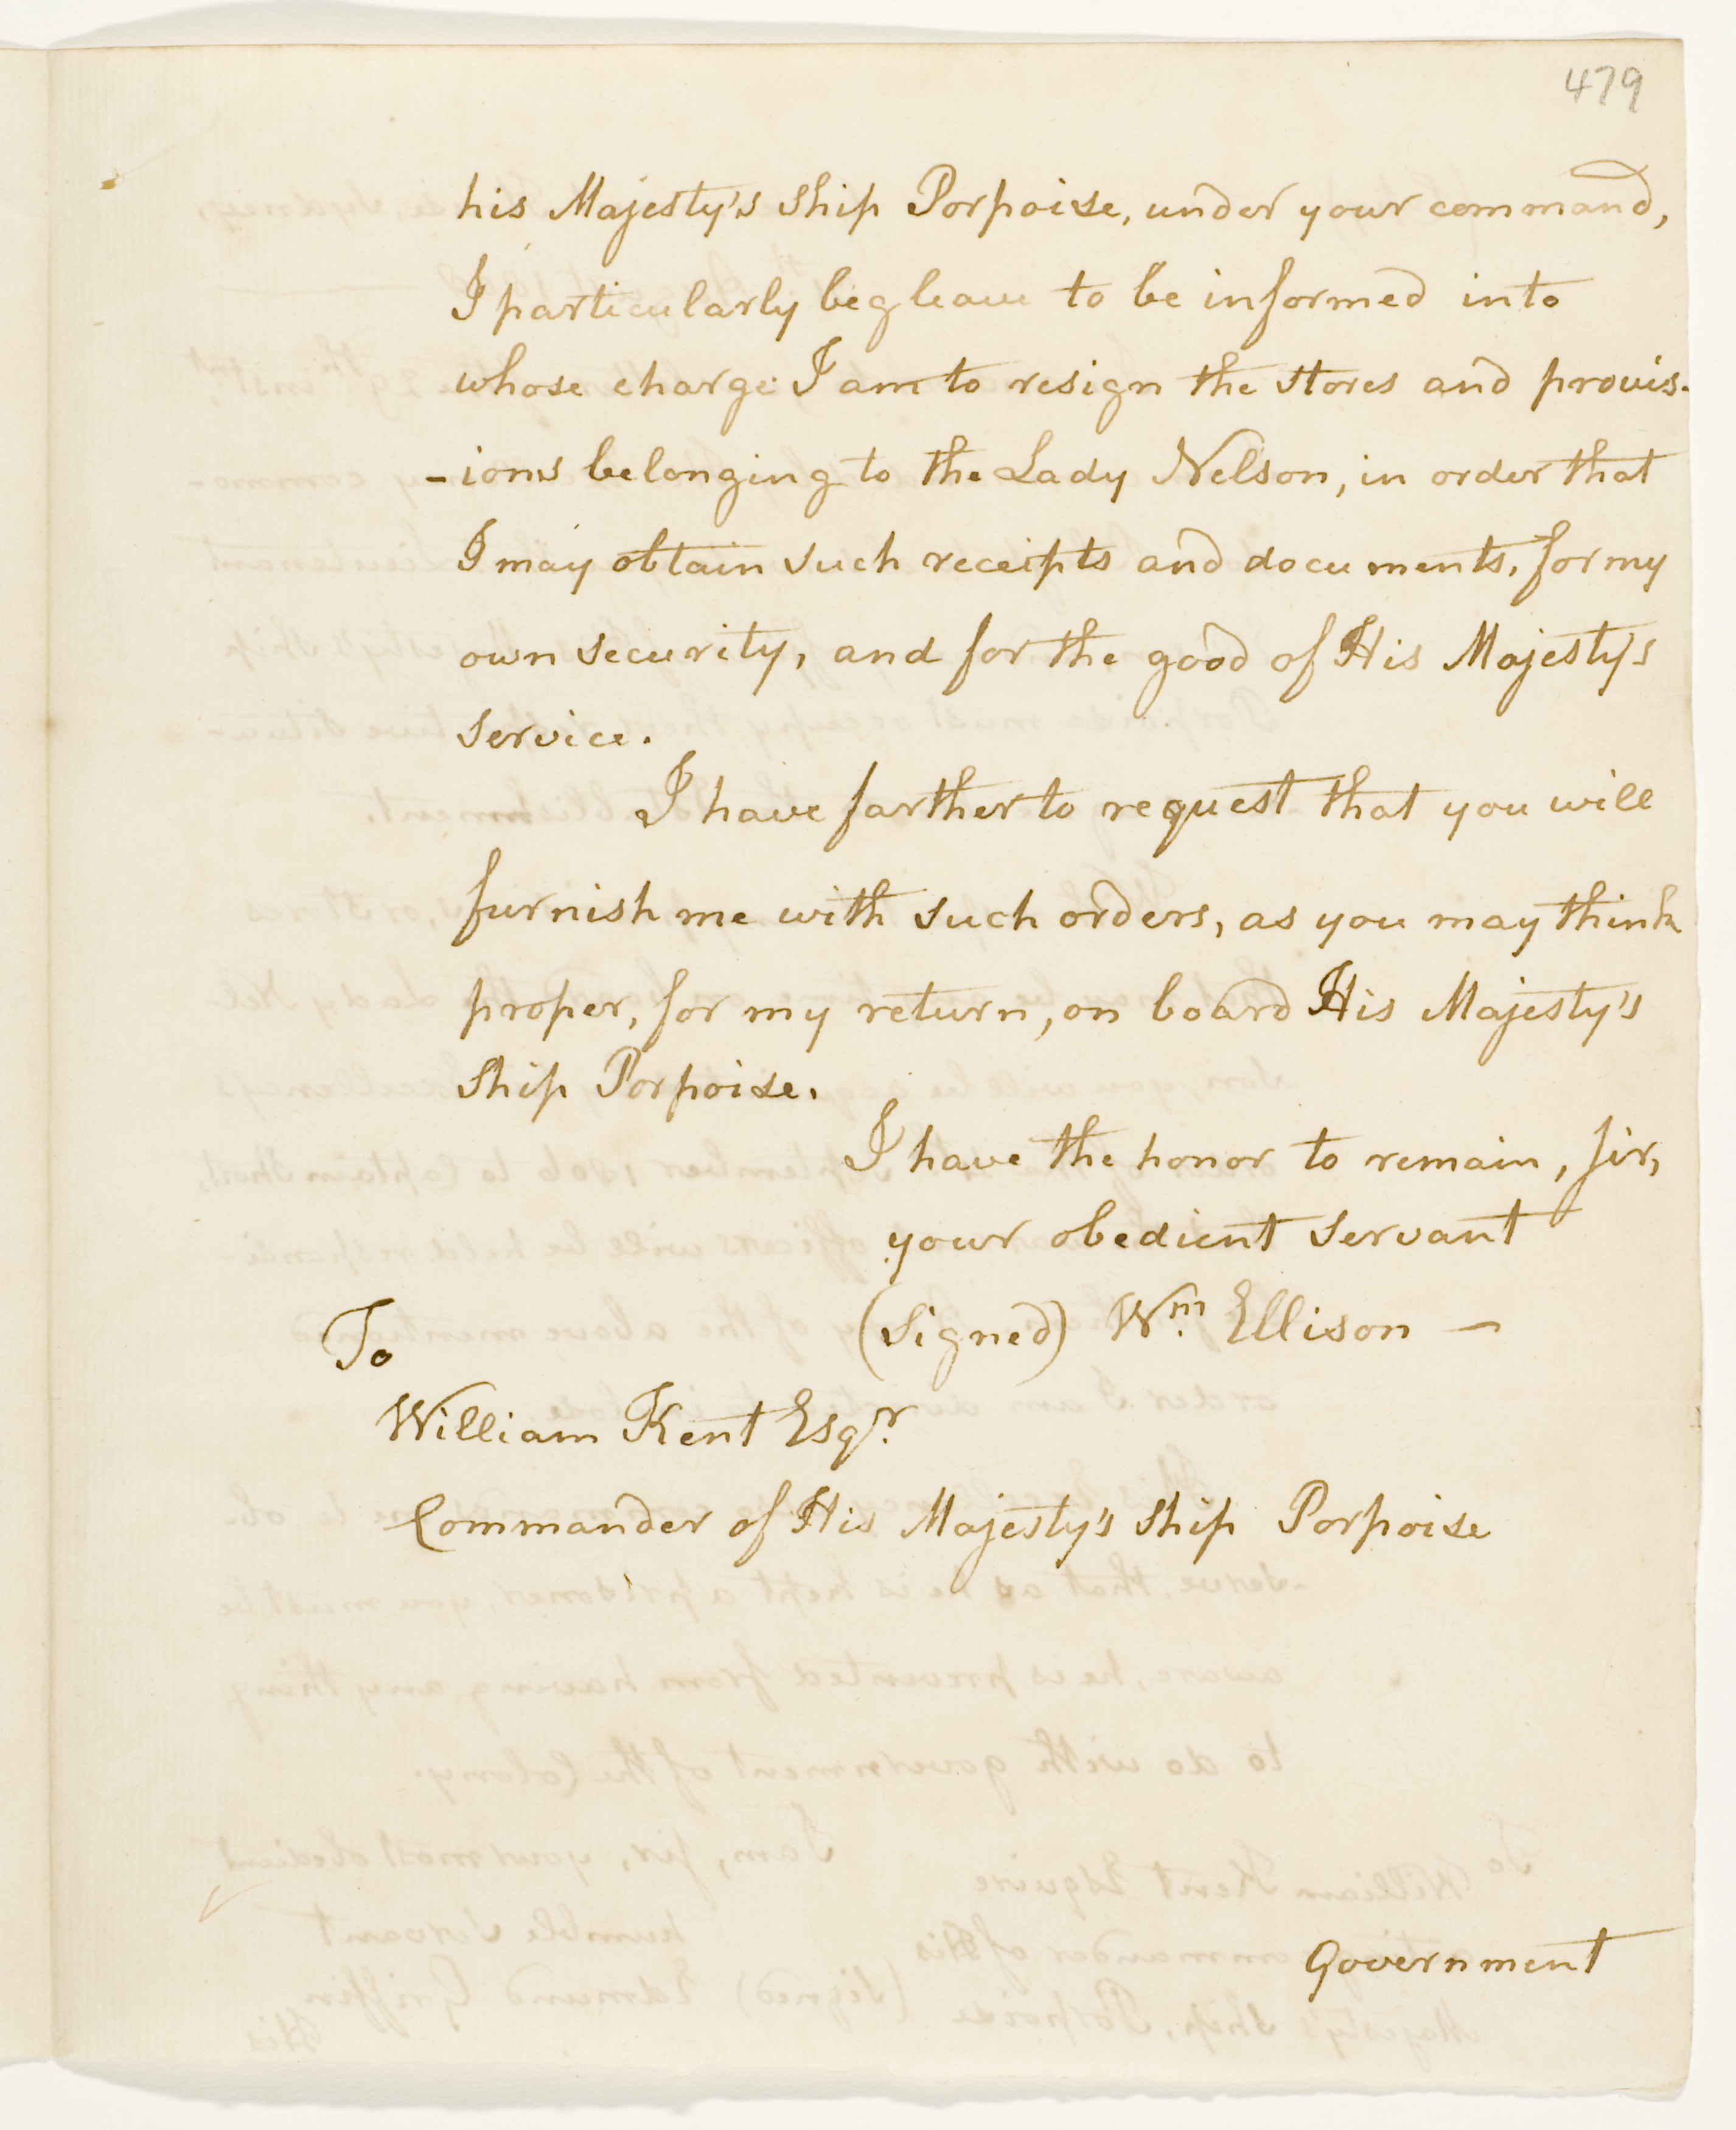 479
his Majesty's ship Porpoise, under your command,
I particularly beg leave to be informed into
whose charge I am to resign the stores and provis-
-ions belonging to the Lady Nelson, in order that
I may obtain such receipts and documents, for my
own security, and for the good of His Majesty's
service.
I have farther to request that you will
furnish me with such orders, as you may think
proper, for my return, on board His Majesty's
ship Porpoise.
I have the honor to remain, sir,
your obedient servant
(signed) Wm. Ellison —
To
William Kent Esqr.
Commander of His Majesty's ship Porpoise
Government